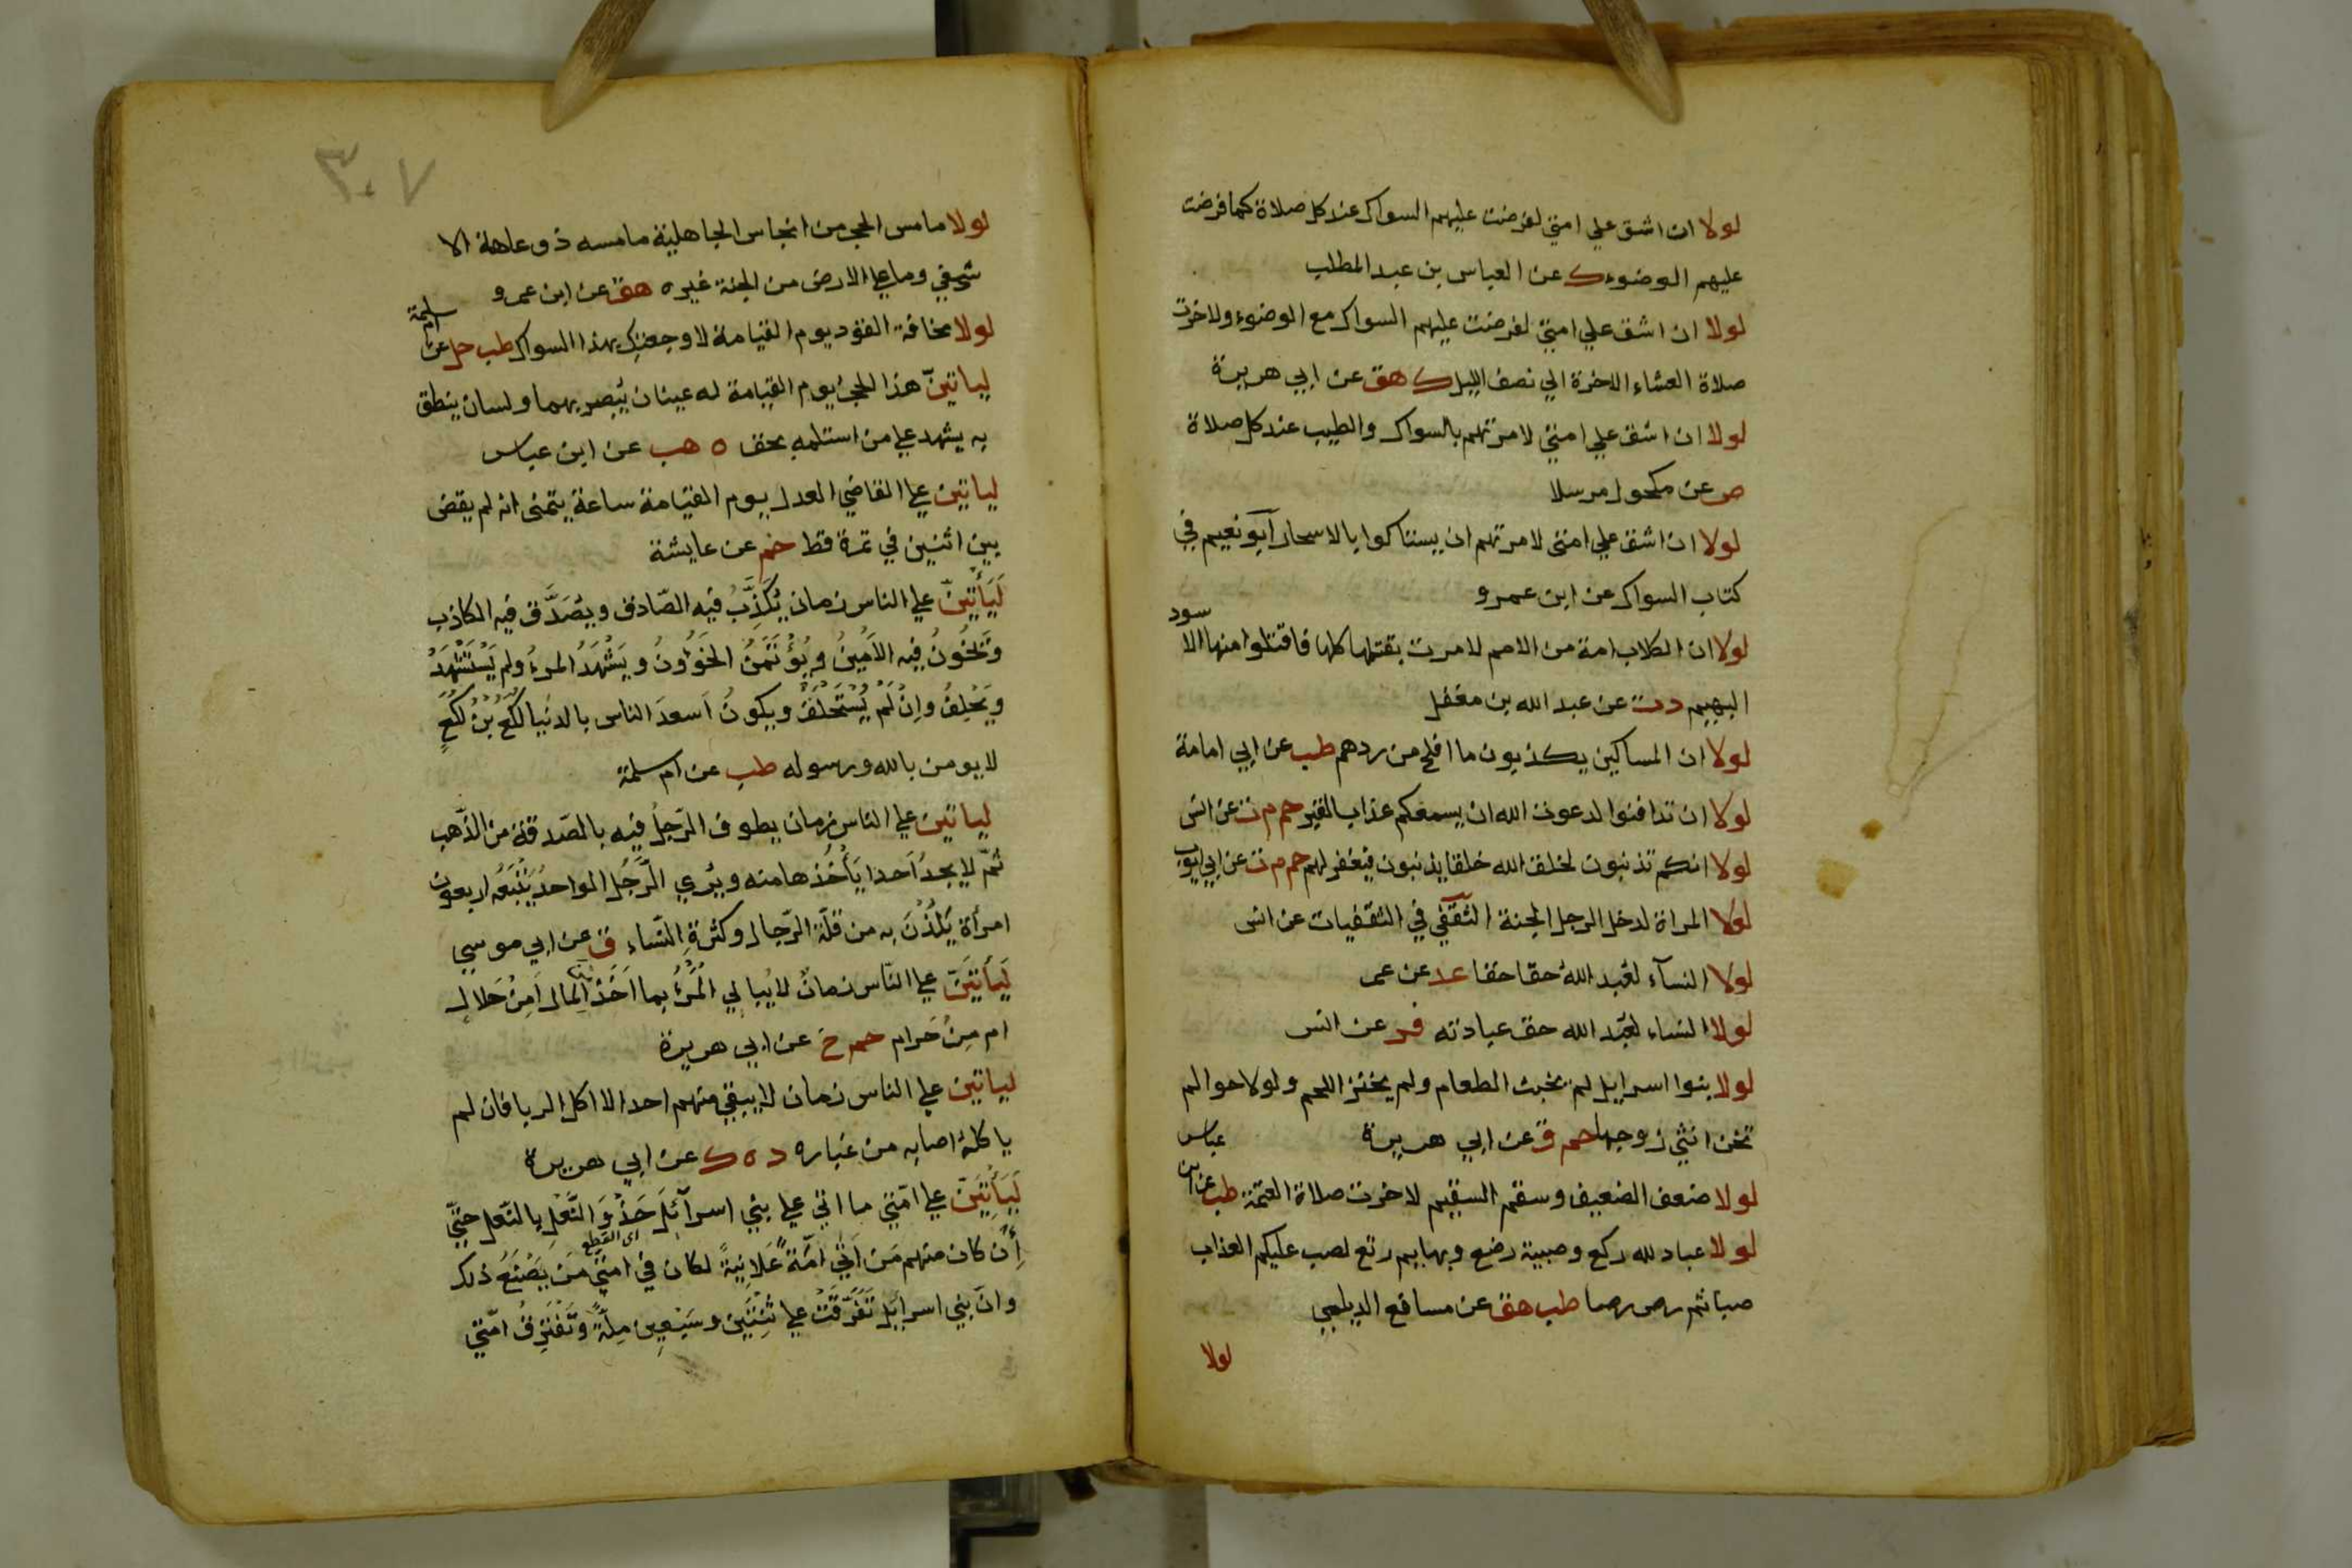 لولا ان اشق علي امتي لفرضت عليهم السواك عند كل صلاة كما فرضت
عليهم الوضوء ك عن العباس بن عبد المطلب
لولا ان اشق علي امتي لفرضت عليهم السواك مع الوضوء ولاخرت
صلاة العشاء الاخرة الي نصف الليل ك هق عن ابي هريرة
لولا ان اشق علي امتي لامرتهم بالسواك والطيب عند كل صلاة
ص عن مكحول مرسلا
لولا ان اشق علي امتي لامرتهم ان يستاكوا بالاسحار ابو نعيم في
كتاب السواك عن ابن عمرو
لولا ان الكلاب امة من الامم لامرت بقتلها كلها فاقتلوا منها الاسود
البهيم د ت عن عبد الله بن مغفل
لولا ان المساكين يكذبون ما افلح من ردهم طب عن ابي امامة
لولا ان تدافنوا لدعوت الله ان يسمعكم عذاب القبر حم م ن عن انس
لولا انكم تذنبون لخلق الله خلقا يذنبون فيغفر لهم حم م ت عن ابي ايوب
لولا المراة لدخل الرجل الجنة الثقفي في الثقفيات عن انس
لولا النسآء لعبد الله حقا حقا عد عن عمر
لولا النساء لعبد الله حق عبادته فر عن انس
لولا بنوا اسرايل لم يخبث الطعام ولم يخنز اللحم ولولا حوا لم
تخن انثي زوجها حم ق عن ابي هريرة
لولا ضعف الضعيف وسقم السقيم لاخرت صلاة العتمة طب عن ابن عباس
لولا عباد لله ركع وصبية رضع وبهايم رتع لصب عليكم العذاب
صبا ثم رص رصا طب هق عن مسافع الديلمي
لولا
٣٠٧
لولا ما مس الحجر من انجاس الجاهلية ما مسه ذو عاهة الا
شفي وما علي الارض من الجنة غيره هق عن ابن عمرو
لولا مخافة القود يوم القيامة لاوجعتك بهذا السواك طب حل عن ام سلمة
لياتينّ هذا الحجر يوم القيامة له عينان يُبصر بهما ولسان ينطق
به يشهد علي من استلمه بحق ه هب عن ابن عباس
لياتين علي القاضي العدل يوم القيامة ساعة يتمنى انه لم يقض
بين اثنين في تمرة قط حم عن عايشة
لَيَأتِيَنّ علي الناس زمان يُكَذَّبُ فيه الصّادق ويُصَدَّق فيه الكاذب
وَيُخَوَّنُ فيه الاَمِينُ ويُؤْتَمَنُ الخَؤُونُ ويَشْهَدُ المرءُ ولم يُسْتَشْهَدْ
وَيَحْلِفُ وإنْ لَمْ يُسْتَحْلَفْ ويكونُ اَسعدَ الناس بالدنيا لُكَعُ بْنُ لُكَعٍ
لا يومن بالله ورسوله طب عن ام سلمة
لياتين علي الناس زمان يطوف الرّجلُ فيه بالصّدقة من الذّهب
ثمّ لا يجدُ اَحدا يَأْخُذُها منه ويُري الرَّجُل الواحدُ يَتْبَعُه اربعون
امرأة يَلُذْنَ به من قلّة الرّجال وكثرةِ النّساء ق عن ابي موسي
لَيَأتِيَنَّ علي النّاس زمانٌ لا يُبالي المَرْءُ بما اَخَذَ المال اَمِنْ حَلال
ام مِنْ حَرام حم خ عن ابي هريرة
لياتين علي الناس زمان لا يبقي منهم احد الا اكل الربا فان لم
ياكله اصابه من غباره د ه ك عن ابي هريرة
لَيَأتِيَنّ علي امّتي ما اتي علي بني اسرآئلَ حَذْوَ النَّعْلِ بالنّعل حتّي
أنْ كان منهم مَن اَتَي امَّهُ عَلانِيَةً لكان في امّتي مَن يَصْنَعُ ذلك
وانّ بني اسرايل تَفَرَّقَتْ علي ثِنْتَيْن وسَبْعِين مِلّةً وتَفْتَرِقُ امّتي